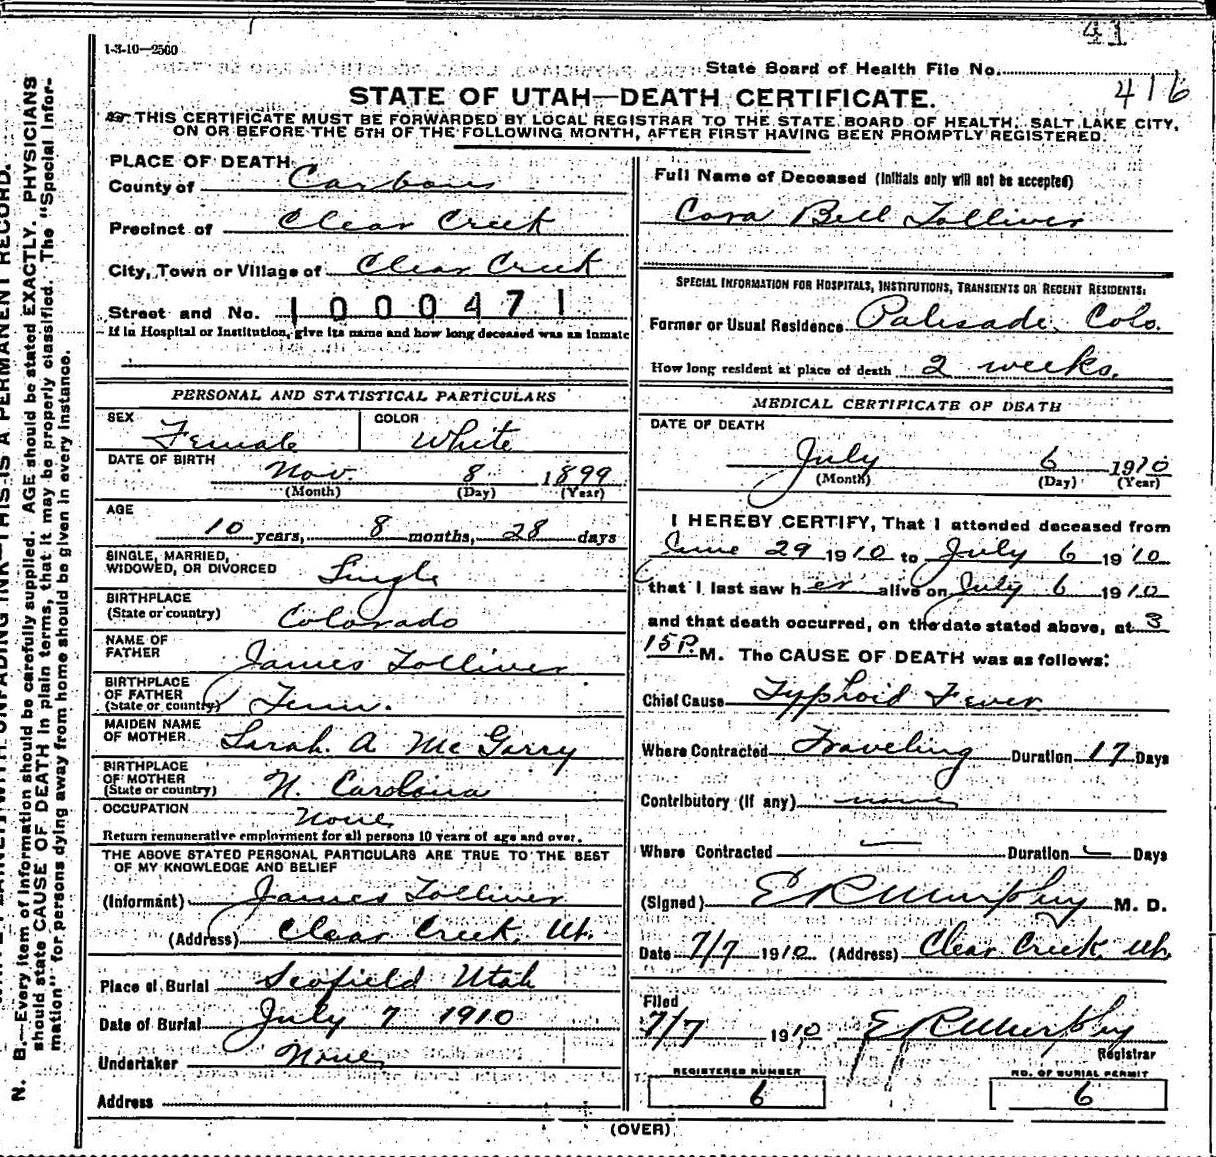 41
1-3-10—2560
State Board of Health File No.
416
STATE OF UTAH—DEATH CERTIFICATE.
THIS CERTIFICATE MUST BE FORWARDED BY LOCAL REGISTRAR TO THE STATE BOARD OF HEALTH, SALT LAKE CITY,
ON OR BEFORE THE 5TH OF THE FOLLOWING MONTH, AFTER FIRST HAVING BEEN PROMPTLY REGISTERED.
PLACE OF DEATH
County of Carbon
Precinct of Clear Creek
City, Town or Village of Clear Creek
Street and No. 1000471
If in Hospital or Institution, give its name and how long deceased was an inmate
PERSONAL AND STATISTICAL PARTICULARS
SEX Female COLOR White
DATE OF BIRTH Nov. 8 1899
(Month) (Day) (Year)
AGE
10 years, 8 months, 28 days
SINGLE, MARRIED,
WIDOWED, OR DIVORCED Single
BIRTHPLACE
(State or country) Colorado
NAME OF
FATHER James Tolliver
BIRTHPLACE
OF FATHER
(State or country) Tenn.
MAIDEN NAME
OF MOTHER Sarah. A McGarry
BIRTHPLACE
OF MOTHER
(State or country) N. Carolina
OCCUPATION None
Return remunerative employment for all persons 10 years of age and over.
THE ABOVE STATED PERSONAL PARTICULARS ARE TRUE TO THE BEST
OF MY KNOWLEDGE AND BELIEF
(Informant) James Tolliver
(Address) Clear Creek, Ut.
Place of Burial Scofield Utah
Date of Burial July 7 1910
Undertaker None
Address
Full Name of Deceased (Initials only will not be accepted)
Cora Bell Tolliver
SPECIAL INFORMATION FOR HOSPITALS, INSTITUTIONS, TRANSIENTS OR RECENT RESIDENTS:
Former or Usual Residence Palisade, Colo.
How long resident at place of death 2 weeks.
MEDICAL CERTIFICATE OF DEATH
DATE OF DEATH
July 6 1910
(Month) (Day) (Year)
I HEREBY CERTIFY, That I attended deceased from
June 29 1910 to July 6 1910
that I last saw her alive on July 6 1910
and that death occurred, on the date stated above, at 3
15 P M. The CAUSE OF DEATH was as follows:
Chief Cause Typhoid Fever
Where Contracted Traveling Duration 17 Days
Contributory (if any) none
Where Contracted Duration Days
(Signed) E R Murphy M. D.
Date 7/7 1910. (Address) Clear Creek, Ut.
Filed
7/7 1910 E R Murphy
Registrar
REGISTERED NUMBER
6
NO. OF BURIAL PERMIT
6
(OVER)
THIS IS A PERMANENT RECORD.
N. B.—Every item of information should be carefully supplied. AGE should be stated EXACTLY. PHYSICIANS
should state CAUSE OF DEATH in plain terms, that it may be properly classified. The "Special Infor-
mation" for persons dying away from home should be given in every instance.